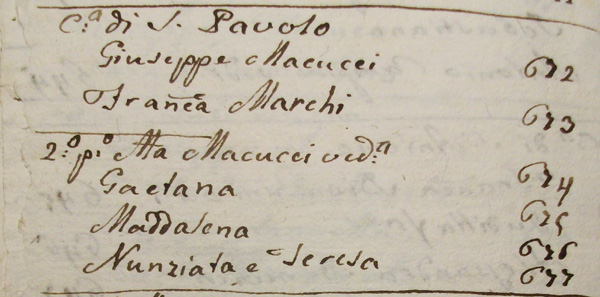 C.ª di S. Pavolo
Giuseppe Macucci 672
Franc̃a Marchi 673
2.º p.º Ma Macucci ved.ª
Gaetana 674
Maddalena 675
Nunziata e Teresa 676
677